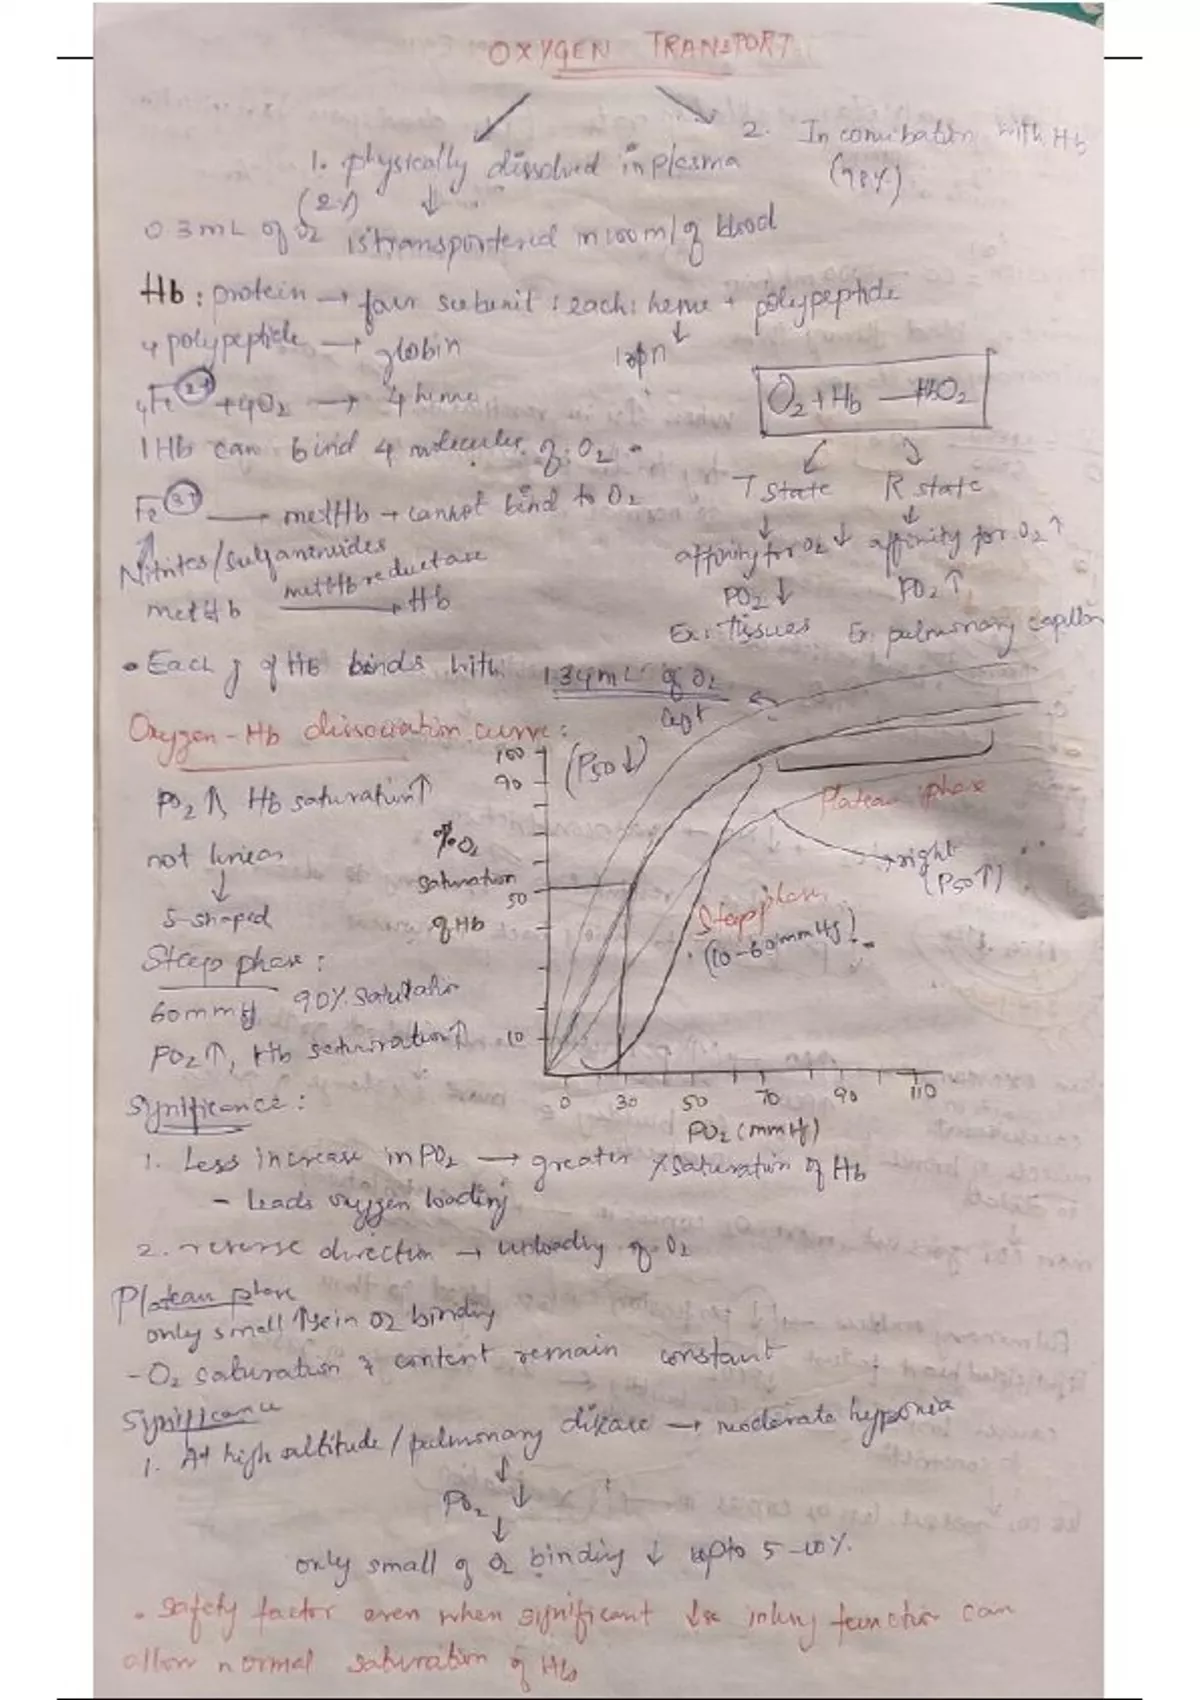 OXYGEN TRANSPORT
1. physically dissolved in plasma
(2%)
2. In combination with Hb
(98%)
0.3mL of O2 is transportered in 100ml of blood
Hb : protein → four subunit : each : heme + polypeptide
4 polypeptide → globin
Iron
4Fe 2+ + 4O2 → 4 heme
O2 + Hb — HbO2
1 Hb can bind 4 molecules of O2
T state R state
Fe 3+ → metHb → cannot bind to O2
affinity for O2 ↓ affinity for O2 ↑
Nitrites/sulfanamides
PO2 ↓ PO2 ↑
metHb metHb reductase → Hb
Ex: Tissues Ex: pulmonary capillari
• Each g of Hb binds with 1.34mL of O2
Oxygen-Hb dissociation curve:
left
(P50↓)
PO2 ↑, Hb saturation↑
not linear
↓
S-shaped
100
90
50
10
% O2
saturation
of Hb
Plateau phase
→ right
(P50↑)
Steep phase
(10-60mmHg)
0 30 50 70 90 110
PO2 (mmHg)
Steep phase:
60mmHg 90% saturation
PO2↑, Hb saturation↑
Significance:
1. Less increase in PO2 → greater % saturation of Hb
- leads oxygen loading
2. reverse direction → unloading of O2
Plateau phase
only small ↑se in O2 binding
- O2 saturation & content remain constant
Significance
1. At high altitude / pulmonary disease → moderate hypoxia
↓
PO2 ↓
↓
only small of O2 binding ↓ upto 5-10%.
• Safety factor even when significant ↓se in lung function can
allow normal saturation of Hb